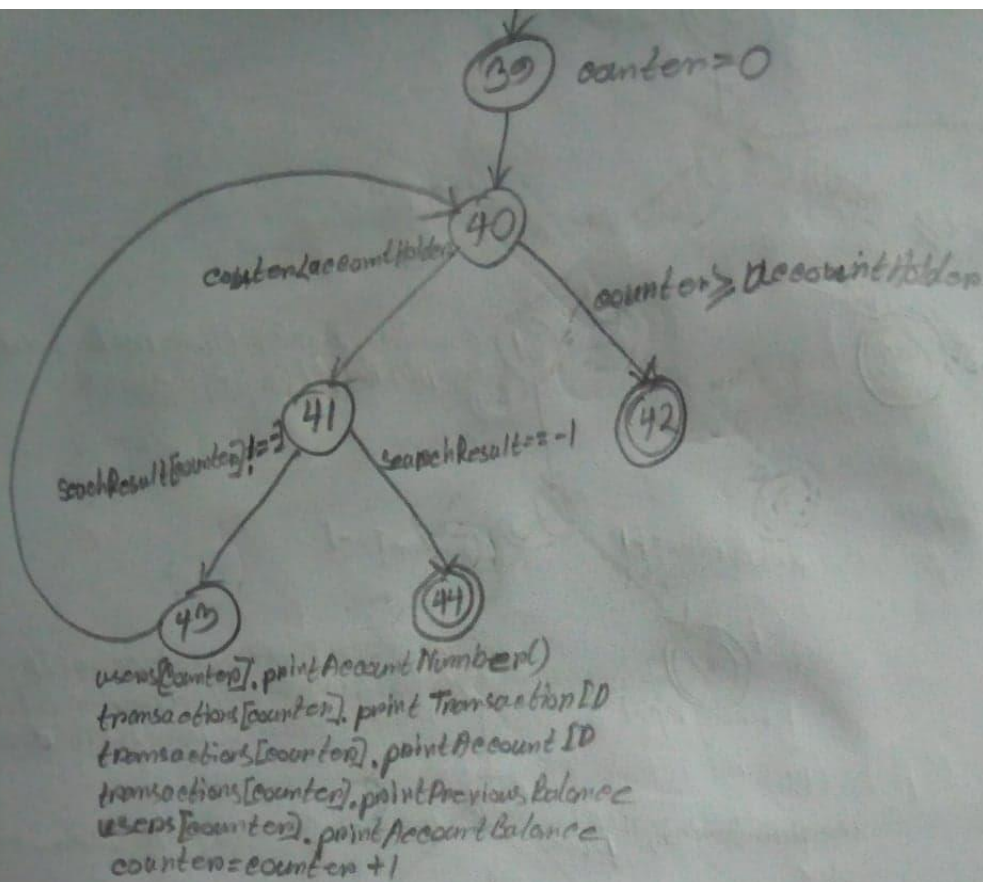 39 counter=0
40
counter<accountHolder
counter≥AccountHolder
41
42
SeachResult[counter]!=-1
SearchResult==-1
43
44
users[counter].printAccountNumber()
transactions[counter].print TransactionID
transactions[counter].printAccountID
transactions[counter].printPreviousBalance
users[counter].printAccountBalance
counter=counter+1